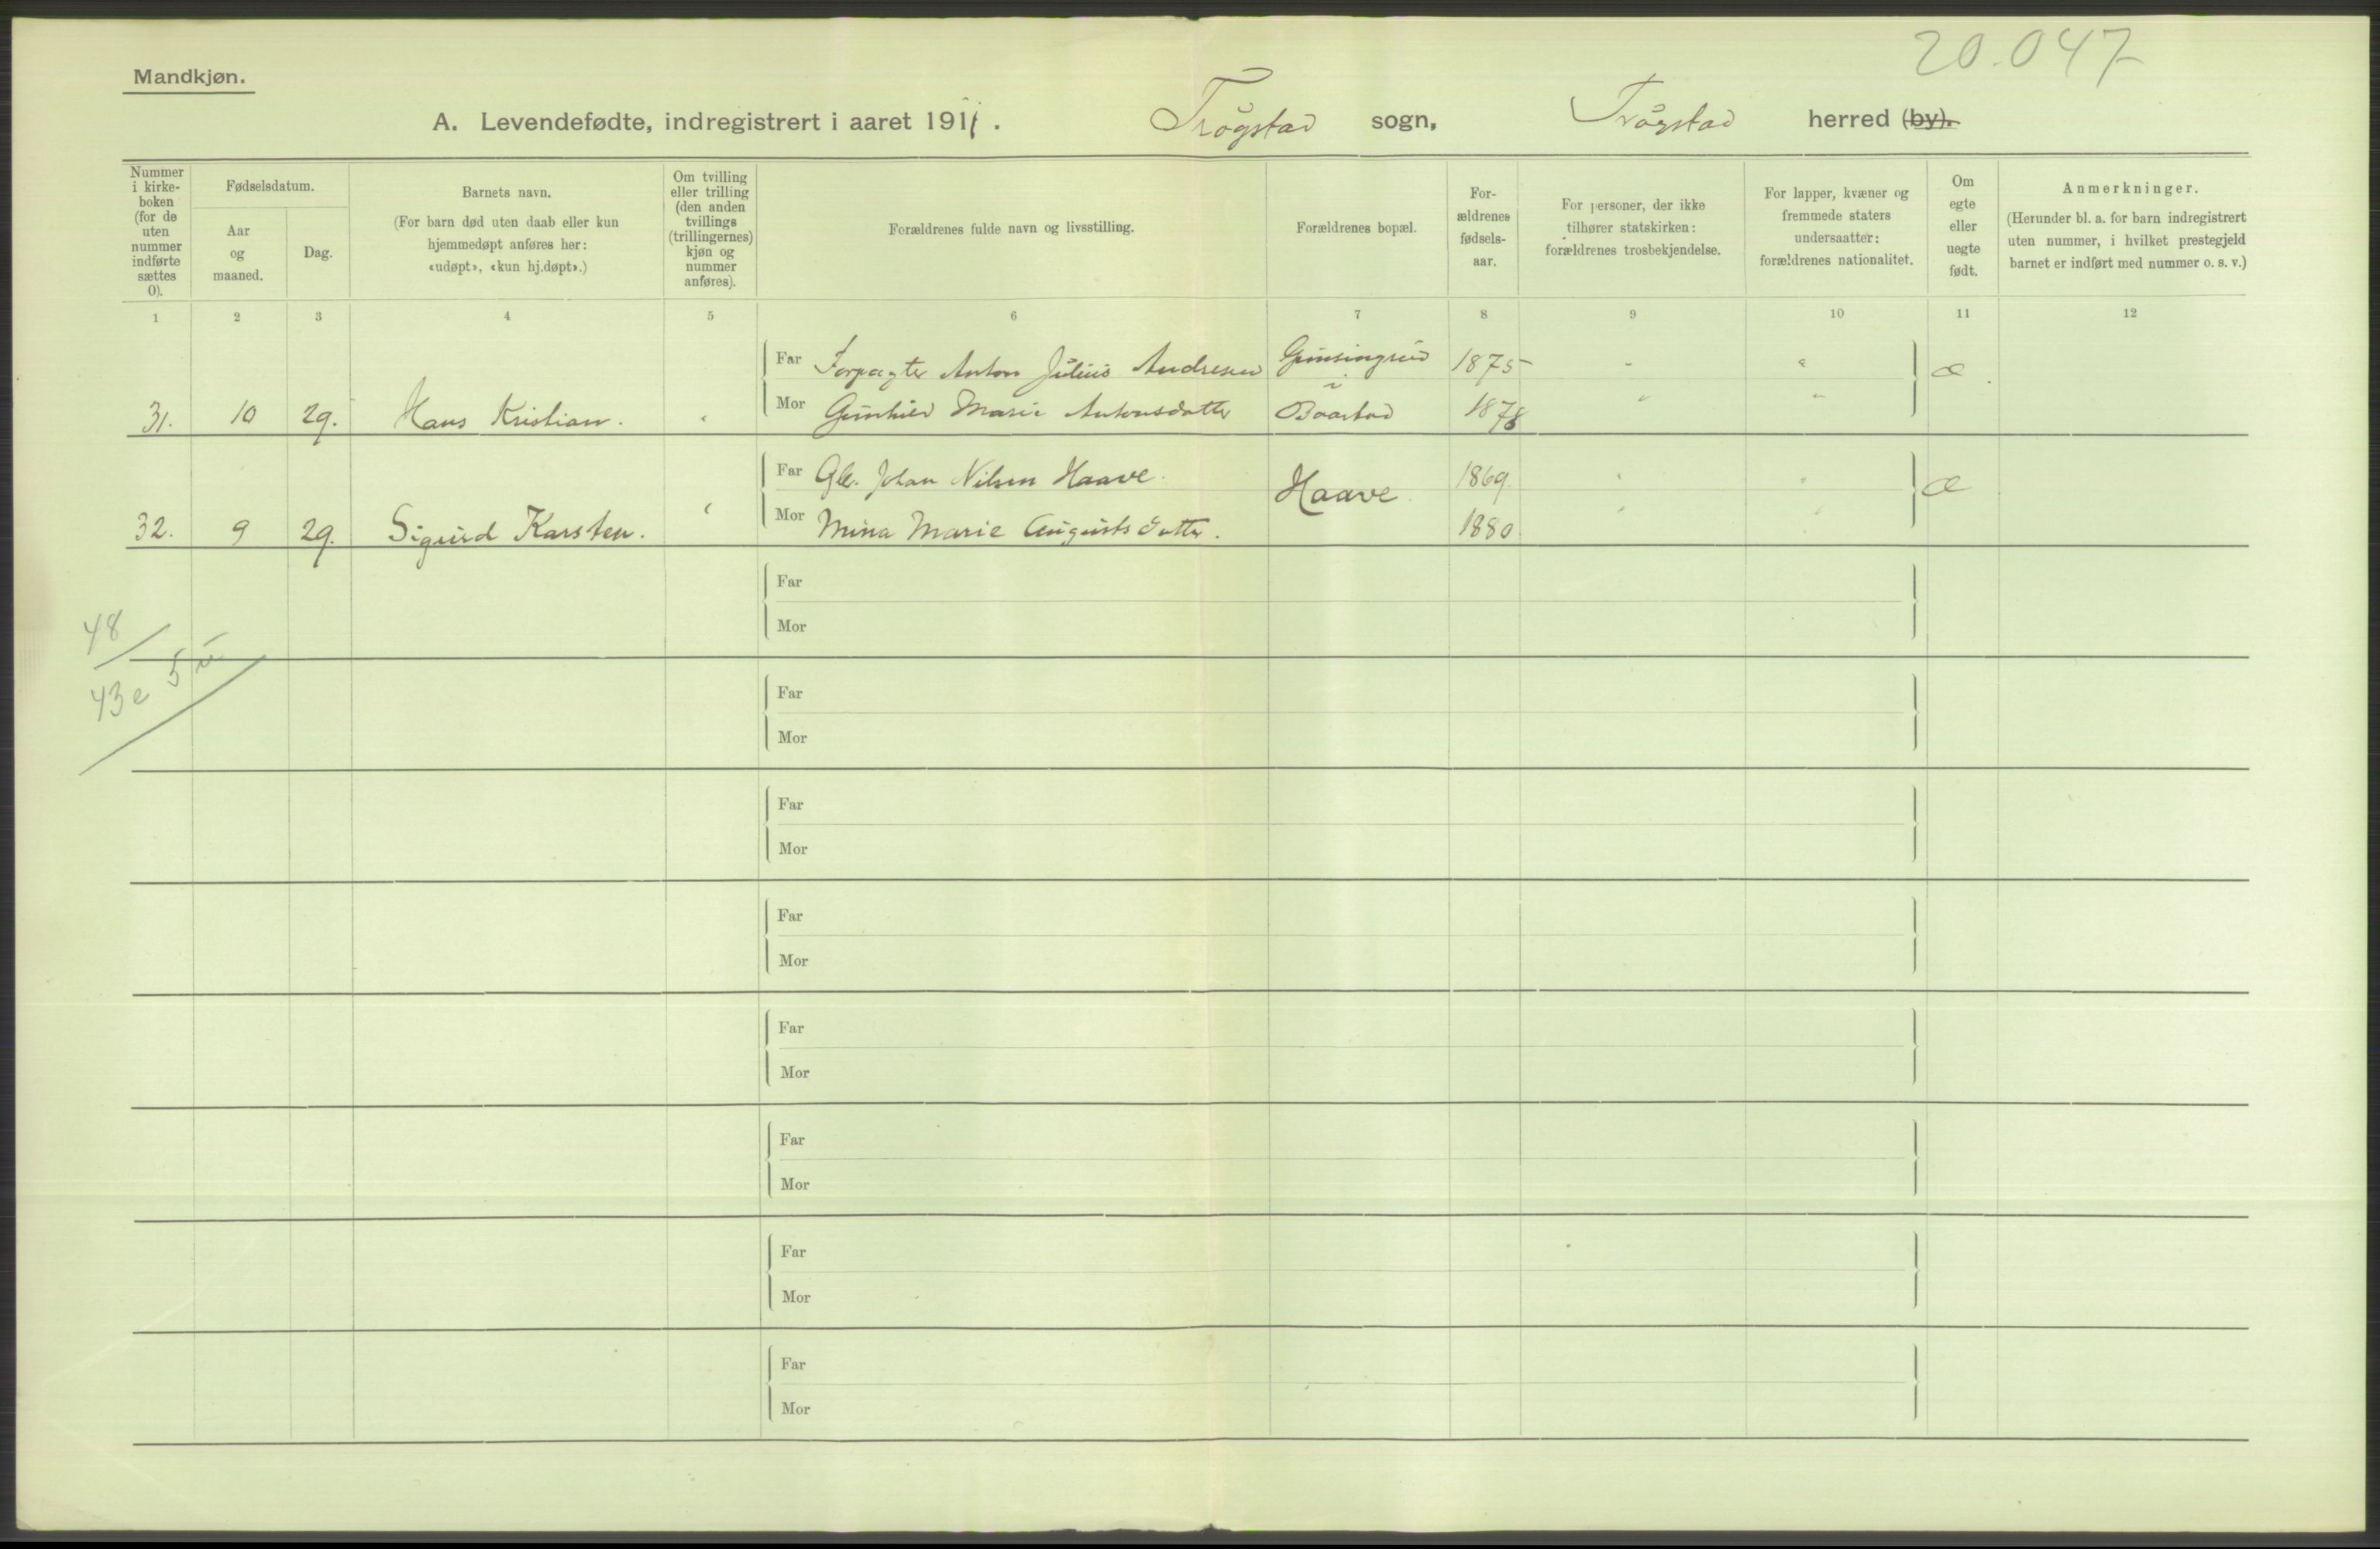 20.047
Mandkjøn.
A. Levendefødte, indregistrert i aaret 1911. Trøgstad sogn, Trøgstad herred (by).
Nummer i kirke-boken (for de uten nummer indførte sættes 0).
Fødselsdatum.
Aar og maaned.
Dag.
Barnets navn.
(For barn død uten daab eller kun hjemmedøpt anføres her: «udøpt», «kun hj.døpt».)
Om tvilling eller trilling (den anden tvillings (trillingernes) kjøn og nummer anføres).
Forældrenes fulde navn og livsstilling.
Forældrenes bopæl.
For-ældrenes fødsels-aar.
For personer, der ikke tilhører statskirken: forældrenes trosbekjendelse.
For lapper, kvæner og fremmede staters undersaatter: forældrenes nationalitet.
Om egte eller uegte født.
Anmerkninger.
(Herunder bl. a. for barn indregistrert uten nummer, i hvilket prestegjeld barnet er indført med nummer o. s. v.)
1 2 3 4 5 6 7 8 9 10 11 12
Far Forpagter Anton Julius Andresen 1875 - " æ.
31. 10 29. Hans Kristian. " Mor Gunhild Marie Antonsdatter i Baastad 1878 " "
Far Gbr. Johan Nilsen Haave. Haave. 1869. " " æ
32. 9 29. Sigurd Karsten. " Mor Mina Marie Augustsdatter. 1880. " "
Far
Mor
48
43e 5u
Far
Mor
Far
Mor
Far
Mor
Far
Mor
Far
Mor
Far
Mor
Far
Mor